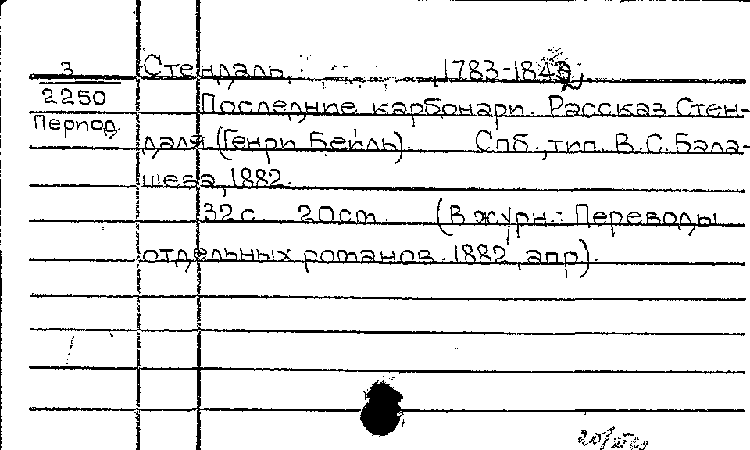 3
2250
Период.
Стендаль, 1783-1842.
Последние карбонари. Рассказ Стен-
даля (Генри Бейль). Спб., тип. В. С. Бала-
шева, 1882.
32 с. 20 cm. (В журн.: Переводы
отдельных романов. 1882, апр).